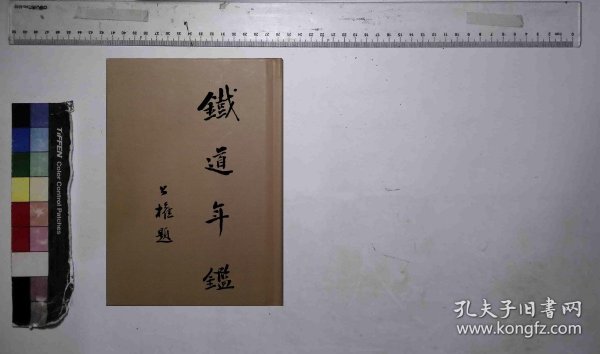 鐵道年鑑
公權題
TIFFEN Color Control Patches
孔夫子旧书网
www.kongfz.com